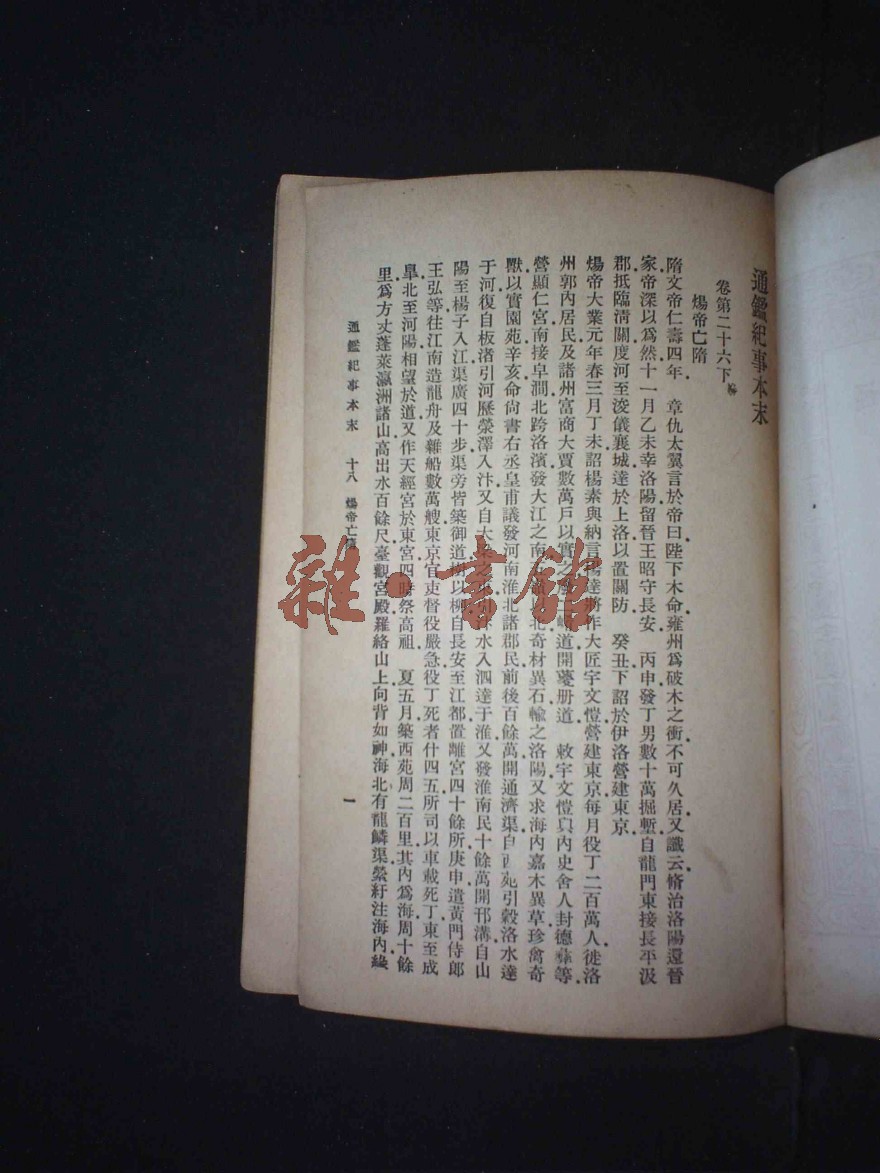 通鑑紀事本末
卷第二十六下
煬帝亡隋
隋文帝仁壽四年　章仇太翼言於帝曰陛下木命雍州爲破木之衝不可久居又讖云脩治洛陽還晉
家帝深以爲然十一月乙未幸洛陽留晉王昭守長安　丙申發丁男數十萬掘塹自龍門東接長平汲
郡抵臨清關度河至浚儀襄城達於上洛以置關防　癸丑下詔於伊洛營建東京
煬帝大業元年春三月丁未詔楊素與納言楊達將作大匠宇文愷營建東京每月役丁二百萬人徙洛
州郭內居民及諸州富商大賈數萬戶以實之廢道開䔥册道　敕宇文愷與內史舍人封德彝等
營顯仁宮南接皁澗北跨洛濱發大江之南五嶺以北奇材異石輸之洛陽又求海內嘉木異草珍禽奇
獸以實園苑辛亥命尙書右丞皇甫議發河南淮北諸郡民前後百餘萬開通濟渠自西苑引穀洛水達
于河復自板渚引河歷滎澤入汴又自大梁之東引汴水入泗達于淮又發淮南民十餘萬開邗溝自山
陽至楊子入江渠廣四十步渠旁皆築御道樹以柳自長安至江都置離宮四十餘所庚申遣黃門侍郎
王弘等往江南造龍舟及雜船數萬艘東京官吏督役嚴急役丁死者什四五所司以車載死丁東至成
皐北至河陽相望於道又作天經宮於東宮四時祭高祖　夏五月築西苑周二百里其內爲海周十餘
里爲方丈蓬萊瀛洲諸山高出水百餘尺臺觀宮殿羅絡山上向背如神海北有龍鱗渠縈紆注海內緣
通鑑紀事本末　十八　煬帝亡隋
一
雜·書館